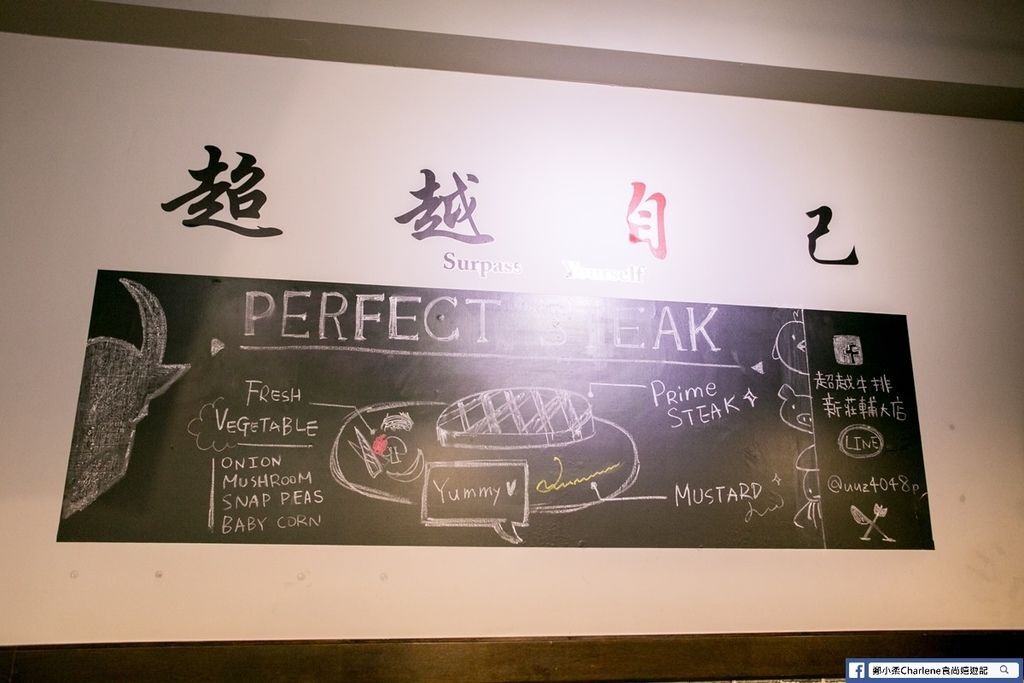 超越自己
Surpass Yourself
PERFECT STEAK
FRESH
VEGETABLE
ONION
MUSHROOM
SNAP PEAS
BABY CORN
Yummy
PRIME
STEAK
MUSTARD
超越牛排
新莊輔大店
LINE
@uuz4048p
鄭小柔Charlene食尚嬉遊記